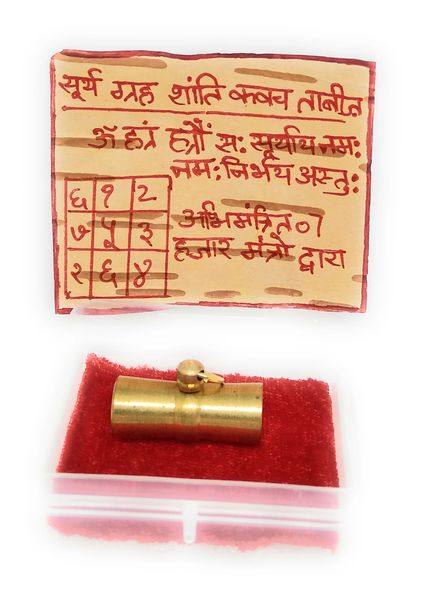 सूर्य ग्रह शांति कवच ताबीज
ॐ ह्रां ह्रौं सः सूर्याय नमः
नमः निर्भय अस्तुः
६ १ २
७ ५ ३
२ ६ ४
अभिमंत्रित ०१
हजार मंत्रो द्वारा